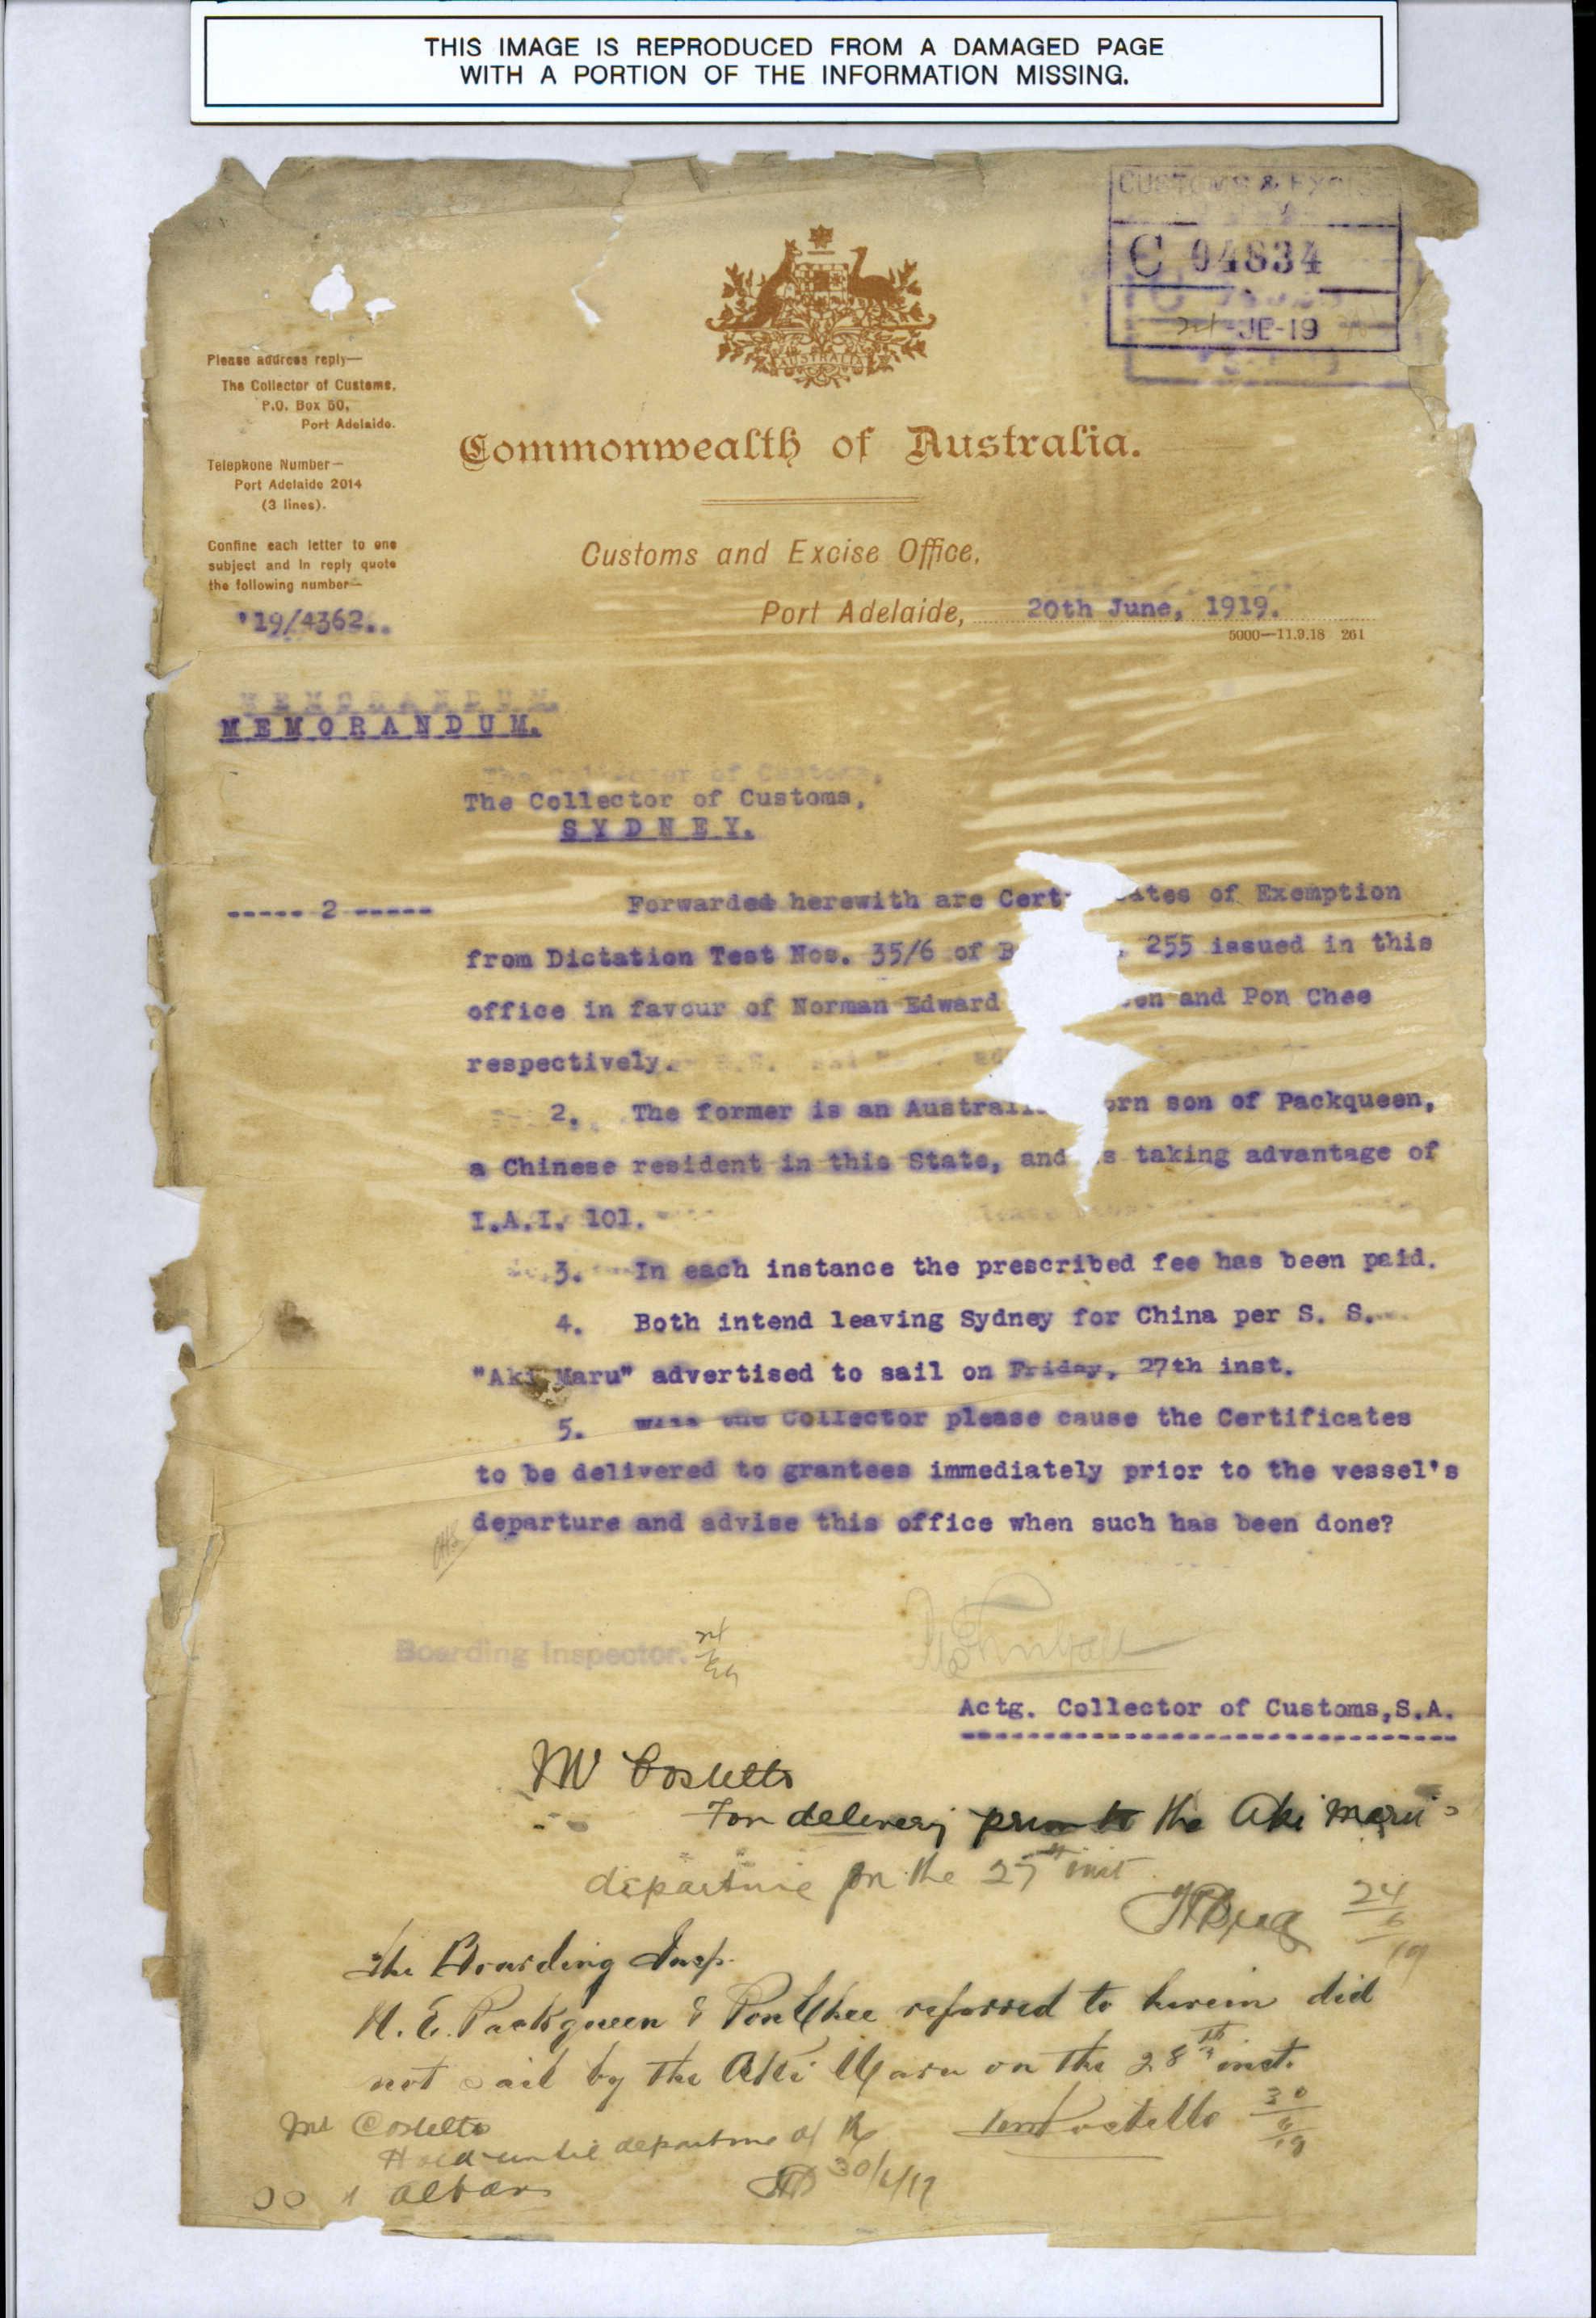 THIS IMAGE IS REPRODUCED FROM A DAMAGED PAGE
WITH A PORTION OF THE INFORMATION MISSING.
CUSTOMS & EXCIS
C 04834
JE-19
AUSTRALIA
Please address reply—
The Collector of Customs,
P.O. Box 50,
Port Adelaide.
Telephone Number—
Port Adelaide 2014
(3 lines).
Confine each letter to one
subject and in reply quote
the following number—
'19/4362.
Commonwealth of Australia.
Customs and Excise Office,
Port Adelaide, 20th June, 1919.
5000—11.9.18 261
MEMORANDUM.
MEMORANDUM.
The Collector of Customs,
The Collector of Customs,
SYDNEY.
----- 2 -----
Forwarded herewith are Cert ates of Exemption
from Dictation Test Nos. 35/6 of B . 255 issued in this
office in favour of Norman Edward en and Pon Chee
respectively.
2. The former is an Australi orn son of Packqueen,
a Chinese resident in this State, and s taking advantage of
I.A.I. 101.
3. In each instance the prescribed fee has been paid.
4. Both intend leaving Sydney for China per S. S.
"Aki Maru" advertised to sail on Friday, 27th inst.
5. Will the Collector please cause the Certificates
to be delivered to grantees immediately prior to the vessel's
departure and advise this office when such has been done?
Boarding Inspector.
Actg. Collector of Customs, S.A.
Mr Costello
For delivery prior to the Aki Maru's
departure on the 27th inst
24/6/19
The Boarding Insp.
N. E. Packqueen & Pon Chee referred to herein did
not sail by the Aki Maru on the 28th inst.
Costello 30/6/19
Mr Costello
Hold until departure of the
St Albans
30/6/19